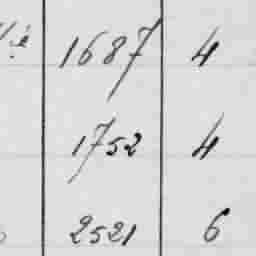 1687 4
1752 4
2521 6